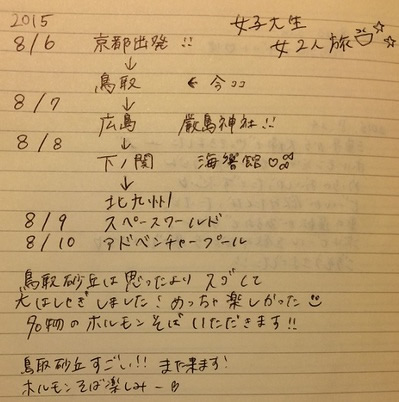 2015
女子大生
女2人旅
8/6 京都出発!!
↓
鳥取 ← 今ココ
8/7 ↓
広島 厳島神社!!
8/8 ↓
下ノ関 海響館♡
↓
北九州
8/9 スペースワールド
8/10 アドベンチャープール
鳥取砂丘は思ったよりスゴくて
大はしゃぎしました! めっちゃ楽しかった
名物のホルモンそばいただきます!!
鳥取砂丘すごい!! また来ます!
ホルモンそば楽しみー